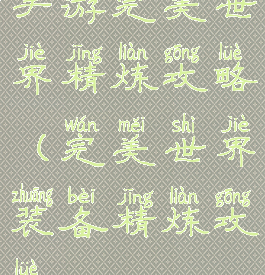 手游完美世
jiè jīng liàn gōng lüè
界精炼攻略
wán měi shì jiè
（完美世界
zhuāng bèi jīng liàn gōng
装备精炼攻
lüè